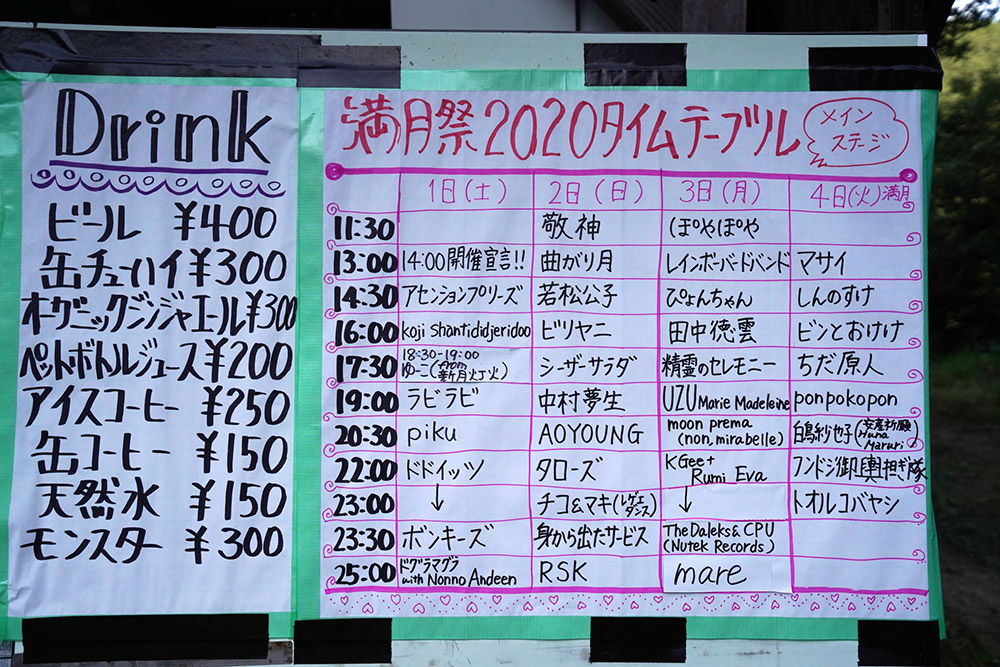 Drink
ビール ¥400
缶チューハイ ¥300
オーガニックジンジャエール ¥300
ペットボトルジュース ¥200
アイスコーヒー ¥250
缶コーヒー ¥150
天然水 ¥150
モンスター ¥300
満月祭2020タイムテーブル
メイン
ステージ
1日(土) 2日(日) 3日(月) 4日(火)満月
11:30 敬神 ぽやぽや
13:00 14:00開催宣言!! 曲がり月 レインボーバードバンド マサイ
14:30 アセンションプリーズ 若松公子 ぴょんちゃん しんのすけ
16:00 koji shantididjeridoo ビリヤニ 田中徳雲 ビンとおけけ
17:30 18:30-19:00 ゆーこ(from 新月灯火) シーザーサラダ 精霊のセレモニー ちだ原人
19:00 ラビラビ 中村夢生 UZU Marie Madeleine ponpokopon
20:30 piku AOYOUNG moon prema (non, mirabelle) 白鳥紗也子(安産祈願 Huna Maruri)
22:00 ドドイッツ タローズ KGee+ Rumi Eva フンドジ御輿担ぎ隊
23:00 ↓ チコ&マキ(レゲエダンス) ↓ トオルコバヤシ
23:30 ボンキーズ 身から出たサービス The Daleks & CPU (Nutek Records)
25:00 ドグラマグラ with Nonno Andeen RSK mare